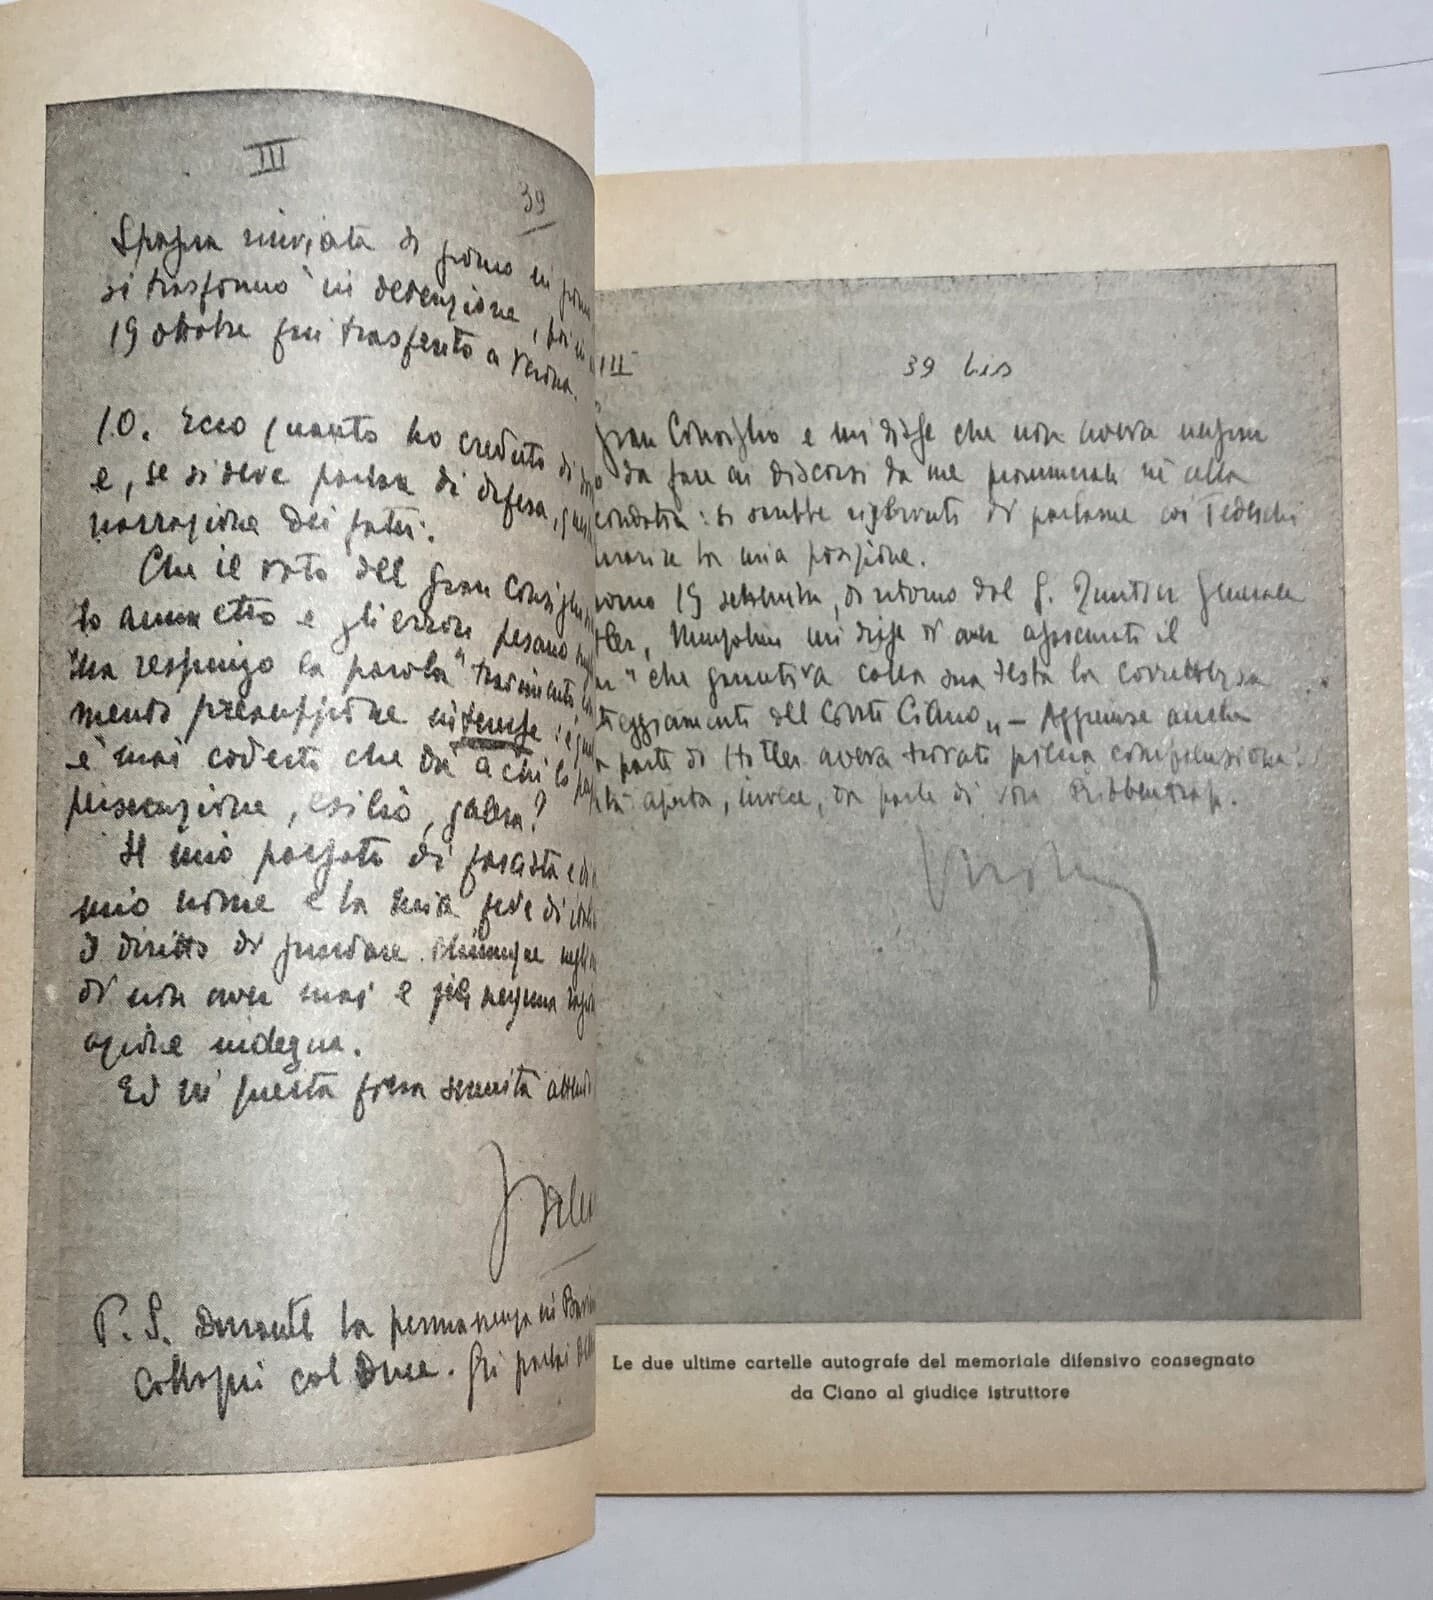 III
39
Spagna rinviata di giorno in
si trasformò in detenzione, poi
19 ottobre fui trasferito a Verona.
10. Ecco quanto ho creduto di
e, se si deve parlare di difesa,
narrazione dei fatti:
Che il voto del Gran Consiglio
lo ammetto e gli errori pesano
ma respingo la parola "tradimento"
mento presuppone interesse:
è mai codesto che dà a chi lo
persecuzione, esilio, galera?
Il mio passato di fascista e di
mio nome e la mia fede di
il diritto di guardare chiunque negli
di non aver mai e per nessuna
azione indegna.
Ed in questa fiera serenità
P. S. Durante la permanenza in
colloqui col Duce. Gli parlai
III
39 bis
Gran Consiglio e mi disse che non aveva
da fare ai discorsi da me pronunciati nè alla
condotta: si sarebbe di parlarne coi Tedeschi
la mia posizione.
19 settembre, di ritorno dal Q. Quartier Generale
Mussolini mi disse di aver il
" che garantiva colla sua testa la correttezza
del Conte Ciano" — Aggiunse anche
parte di Hitler aveva trovato piena comprensione.
aperta, invece, da parte di von Ribbentrop.
Le due ultime cartelle autografe del memoriale difensivo consegnato
da Ciano al giudice istruttore